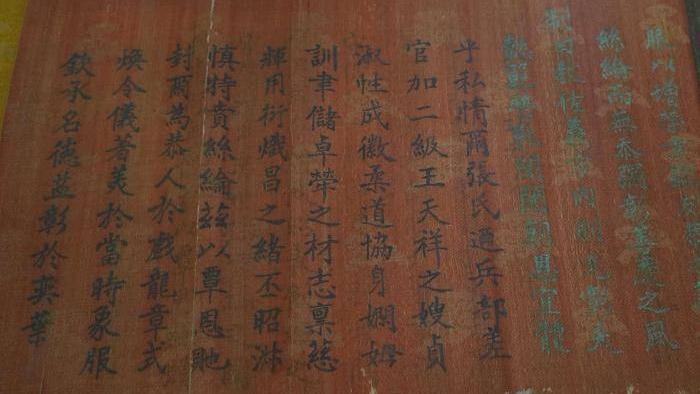 服以增
絲綸而無忝彌彰善慶之風
制曰
朝恩宜體
乎私情爾張氏迺兵部差
官加二級王天祥之嫂貞
淑性成徽柔道協身嫻姆
訓聿儲卓犖之材志稟慈
輝用衍熾昌之緒丕昭淑
慎特賁絲綸茲以覃恩貤
封爾為恭人於戲龍章式
煥令儀著美於當時象服
欽承名德益彰於奕葉